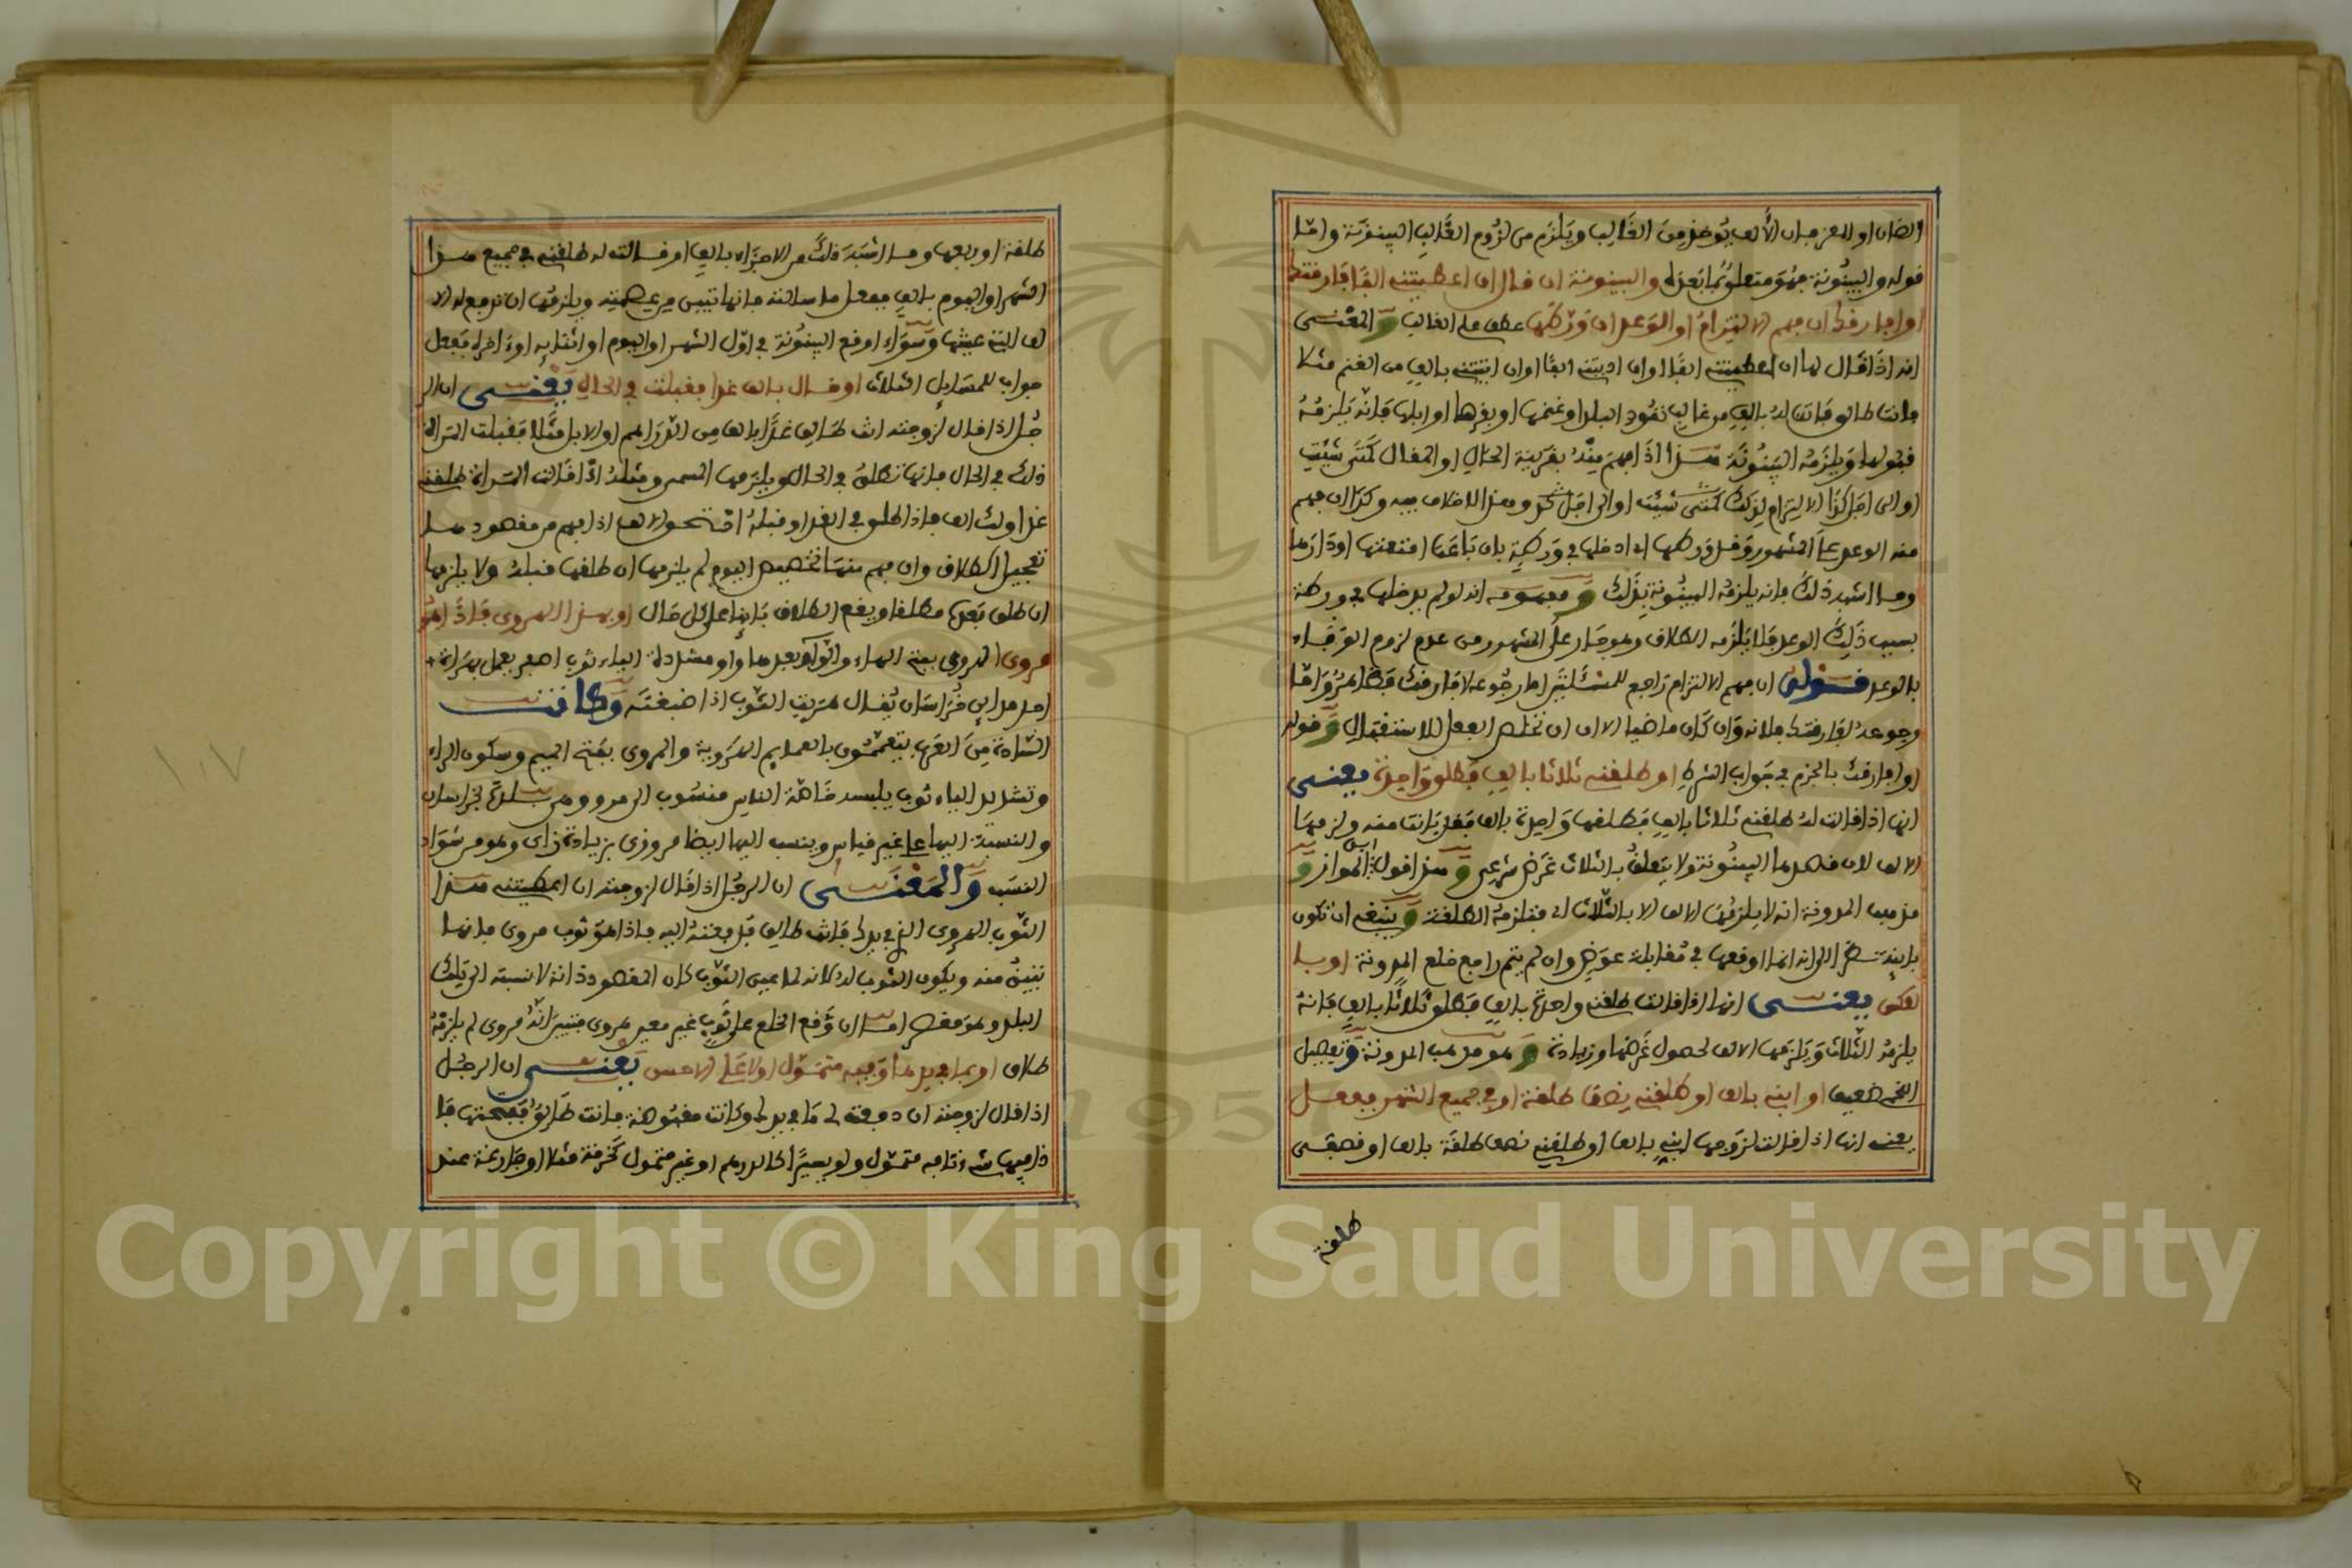 الضان او المعز فان الألف يُؤخذ مِنَ الغَالِب ويَلْزم من لزُوم الغَالبِ البينونَة وامّا
قوله والبينُونة فهُوَ متعلِّقٌ بما بَعدَه والبينونة ان قال ان اعطيتني الفًا فارقتك
او افارقك ان فهم الالتِزامُ او الوَعد ان وَرَّطَها عطف على الغالب وَ المعْنَـى
انه اذَا قَال لها ان اعطيتني الفًا او ان اديتني الفًا او ان اتيتني بالفٍ من الغنم مثلا
فانت طالق فَاتت لهُ بالفٍ من غالبِ نقُود البلد او غنمها او بقرها او ابلها فَانّه يَلزمُهُ
قبُولها وَيلزَمُه البَينُونَةَ هَـذا اذَا فهمَ مِنْهُ بقرينة الحَالِ او المقال كمَتَى شئتِ
او الى اجَل كذَا الالتِزام لِذلك كمَتَى شئت او الى اجَل ومحل الخلاف فيه وكذا ان فهم
منه الوعد علَى المشهور وَقد وَرطها اي ادخلها في وَرطةٍ بان بَاعَت امتعتها او دَارَها
وما اشبه ذلكَ فانه يلزمُه البينُونة بِذَلك وَ مفهومه انه لو لم يدخلها في ورطة
بسبب ذَلِكَ الوعد فلا يَلزَمه الطلاق وهو جَار على المشهور من عدم لزوم الوَفَاء
بالوعد فقولهُ ان فهم الالتزام رَاجع للمسْئلتين اما رجُوعه لافَارقك فظاهرٌ وَامّا
رجوعه لفارقتك فلانه وَان كَان ماضيا الا ان ان تخلص الفعل للاستقبال وَ قوله
او افارقك بالجزم في جَواب الشرط او طلقني ثلاثا بالفٍ فطلق وَاحدة يعنـي
انها اذا قالت لهُ طلقني ثلاثا بالفٍ فطلقها وَاحدة بالف فقد بَانت منه ولزمهَا
الالف لان قصدها البينُونة ولا يتعلقُ بالثلاث غَرَض شرعي وَ هذا قول ابن المواز وَ
مذهب المدونة انه لا يلزمُها الالف الا بالثلاث اي فتلزمهُ الطلقة وَ ينبغي ان تكون
باينة نظرا الى انه انما اوقعها في مُقابلة عوَضٍ وان لم يتم راجع خلع المدونة او بـا
لعكس يعنـى انها اذا قالت طلقني واحدة بالفٍ فطلق ثلاثًا بالفٍ فانهُ
يلزمُه الثلاث وَيَلزمها الالف لحصول غَرَضها وزيادة وَ هو مذهب المدونة وَتفصيل
اللخمي ضعيف او ابنّي بالف او طلقني نِصْفَ طلقة او في جميع الشهر ففعـل
يعني انها اذا قالت لزَوجها ابنّي بالف او طلقني نصف طلقَة بالف او نصفـى
طلقة
طلقة او ربعها وما اشبَهَ ذلكَ من الاجزَاء بالف او قالت له طلقني في جميع هـذا
الشهر او اليوم بالفٍ ففعل ما سالته فانها تبين من عصمته ويلزمُها ان تدفع له الا
لف التي عينتها وَسَوَاء اوقع البينُونة في اوّل الشهر او اليوم او اثنايه او في اخره فَفعل
جواب للمسَايل الثلاث او قـال بالف غدا فقبلت في الحَالِ يعْنـى ان الر
جُل اذا قال لزوجته انت طَالِق غدًا بالف من الدّرَاهم او الابل مثَلا فقبلت المَراة
ذلك في الحَال فانها تطلقُ في الحَال ويلزَمها المسمى ومثلهُ اذَا قَالت المَراة طلقني
غدا ولك الف فاذا طلق في الغد او قبلهُ استحق الالف اذا فهم من مقصودهـا
تعجيل الطلاق وان فهم منهَا تخصيص اليوم لم يلزمها ان طلقها قبلهُ ولا يلزمها
ان طلق بَعدَه مطلقا ويقع الطلاق بَاينا على كل حَال او بهـذا الهروى فاذَا هُوَ
مروى الهروى بفتح الهاء والوَاو بعدها واو مشددة الياء ثوب اصفر يعمل بهَرَاة
احد مداين خُرَاسَان يُقال هَريت الثوب اذا صَبغتَه وَكانت
السَّادة مِنَ العَرَب يتعمّمُون بالعمايم الهرَوية والمروى بفتح الميم وسكون الراء
وتشديد الياء ثوب يلبسه خَاصّة الناس منسُوب الى مرو وهي بلدة بخراسان
والنسبة اليها على غير قياس وينسب اليها ايضا مروزى بزيادة زاى وهو من شوَاد
النسَب وَالمَعْنَـى ان الرجُل اذا قَال لزوجته ان اعطيتني هـذا
الثوب الهروى الذى في يدك فَانت طَالق فَدَفعتهُ اليه فاذا هوَ ثوب مروى فانها
تبينُ منه ويكون الثوب لهُ لانه لما عين الثوب كان المقصود ذاته لا نسبته الى تلك
البلد وهو مقصر امـا ان وَقع الخلع على ثوبٍ غير معين هروى فتبين انّهُ مروى لم يلزمهُ
طلاق او بما في يدها وَفيه متمَوّل او لا عَلى الاحسن يَعْنـى ان الرجُل
اذا قال لزوجته ان دفعت لي مَا في يدك وكانت مقبُوضة فانت طَالقٌ ففتحتها فا
ذا فيها شىء تافه متمَوّل ولو يسيرًا كالدرهم او غير متمول كَخرقة مثلا او فَارغة عند
١٠٧